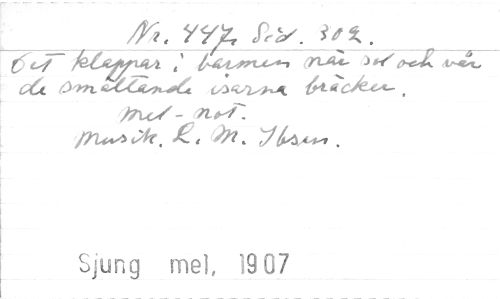 Nr. 447. Sid. 302.
Det klappar i barmen när sol och vår
de smältande isarna bräcker.
mel-not.
Musik. L. M. Ibsen.
Sjung mel, 1907